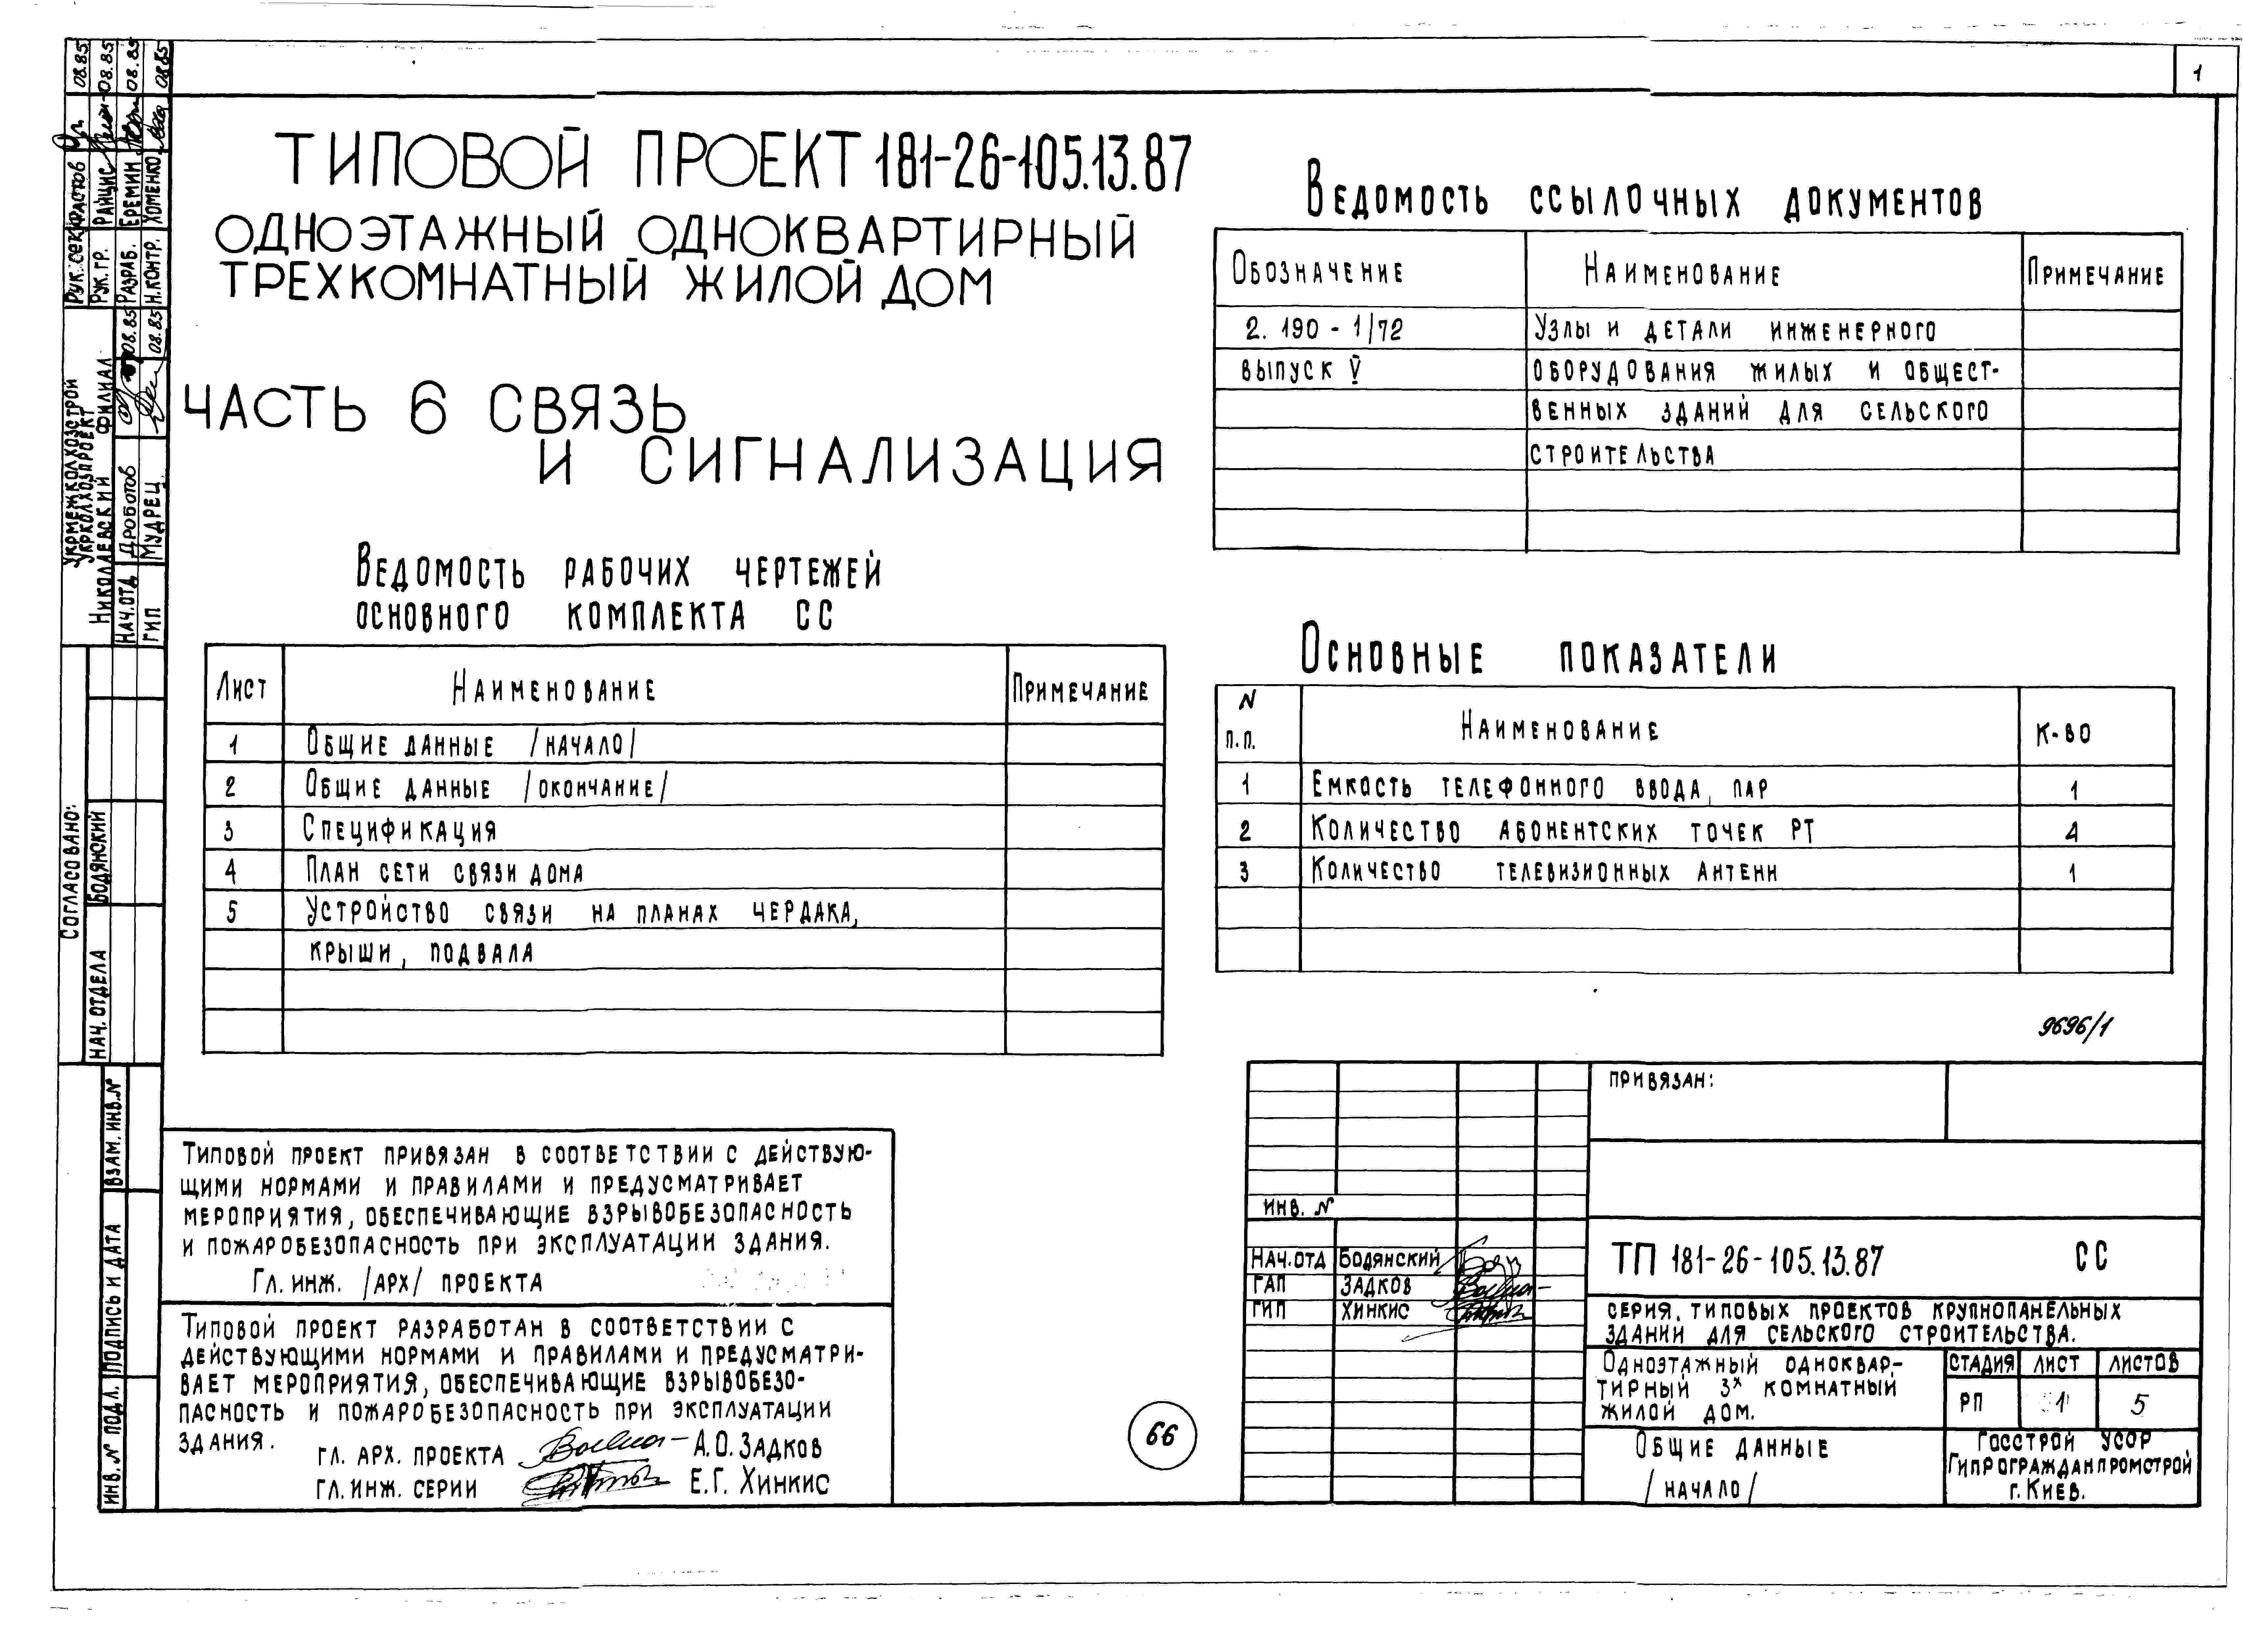 1
ТИПОВОЙ ПРОЕКТ 181-26-105.13.87
ОДНОЭТАЖНЫЙ ОДНОКВАРТИРНЫЙ
ТРЕХКОМНАТНЫЙ ЖИЛОЙ ДОМ
ЧАСТЬ 6 СВЯЗЬ
И СИГНАЛИЗАЦИЯ
ВЕДОМОСТЬ РАБОЧИХ ЧЕРТЕЖЕЙ
ОСНОВНОГО КОМПЛЕКТА СС
ЛИСТ НАИМЕНОВАНИЕ ПРИМЕЧАНИЕ
1 ОБЩИЕ ДАННЫЕ /НАЧАЛО/
2 ОБЩИЕ ДАННЫЕ /ОКОНЧАНИЕ/
3 СПЕЦИФИКАЦИЯ
4 ПЛАН СЕТИ СВЯЗИ ДОМА
5 УСТРОЙСТВО СВЯЗИ НА ПЛАНАХ ЧЕРДАКА,
КРЫШИ, ПОДВАЛА
ТИПОВОЙ ПРОЕКТ ПРИВЯЗАН В СООТВЕТСТВИИ С ДЕЙСТВУЮ-
ЩИМИ НОРМАМИ И ПРАВИЛАМИ И ПРЕДУСМАТРИВАЕТ
МЕРОПРИЯТИЯ, ОБЕСПЕЧИВАЮЩИЕ ВЗРЫВОБЕЗОПАСНОСТЬ
И ПОЖАРОБЕЗОПАСНОСТЬ ПРИ ЭКСПЛУАТАЦИИ ЗДАНИЯ.
ГЛ. ИНЖ. /АРХ/ ПРОЕКТА
ТИПОВОЙ ПРОЕКТ РАЗРАБОТАН В СООТВЕТСТВИИ С
ДЕЙСТВУЮЩИМИ НОРМАМИ И ПРАВИЛАМИ И ПРЕДУСМАТРИ-
ВАЕТ МЕРОПРИЯТИЯ, ОБЕСПЕЧИВАЮЩИЕ ВЗРЫВОБЕЗО-
ПАСНОСТЬ И ПОЖАРОБЕЗОПАСНОСТЬ ПРИ ЭКСПЛУАТАЦИИ
ЗДАНИЯ.
ГЛ. АРХ. ПРОЕКТА А.О. ЗАДКОВ
ГЛ. ИНЖ. СЕРИИ Е.Г. ХИНКИС
66
ВЕДОМОСТЬ ССЫЛОЧНЫХ ДОКУМЕНТОВ
ОБОЗНАЧЕНИЕ НАИМЕНОВАНИЕ ПРИМЕЧАНИЕ
2.190-1/72 УЗЛЫ И ДЕТАЛИ ИНЖЕНЕРНОГО
ВЫПУСК V ОБОРУДОВАНИЯ ЖИЛЫХ И ОБЩЕСТ-
ВЕННЫХ ЗДАНИЙ ДЛЯ СЕЛЬСКОГО
СТРОИТЕЛЬСТВА
ОСНОВНЫЕ ПОКАЗАТЕЛИ
N П.П. НАИМЕНОВАНИЕ К-ВО
1 ЕМКОСТЬ ТЕЛЕФОННОГО ВВОДА, ПАР 1
2 КОЛИЧЕСТВО АБОНЕНТСКИХ ТОЧЕК РТ 4
3 КОЛИЧЕСТВО ТЕЛЕВИЗИОННЫХ АНТЕНН 1
9696/1
ПРИВЯЗАН:
ИНВ. N
НАЧ.ОТД БОДЯНСКИЙ
ГАП ЗАДКОВ
ГИП ХИНКИС
ТП 181-26-105.13.87 СС
СЕРИЯ. ТИПОВЫХ ПРОЕКТОВ КРУПНОПАНЕЛЬНЫХ
ЗДАНИЙ ДЛЯ СЕЛЬСКОГО СТРОИТЕЛЬСТВА.
ОДНОЭТАЖНЫЙ ОДНОКВАР-
ТИРНЫЙ 3х КОМНАТНЫЙ
ЖИЛОЙ ДОМ.
СТАДИЯ ЛИСТ ЛИСТОВ
РП 1 5
ОБЩИЕ ДАННЫЕ
/НАЧАЛО/
ГОССТРОЙ УССР
ГИПРОГРАЖДАНПРОМСТРОЙ
Г. КИЕВ.
РУК. СЕК. ФАСТОВ 08.85
РУК. ГР. РАЙЦИС 08.85
РАЗРАБ. ЕРЕМИН 08.85
Н.КОНТР. ХОМЕНКО 08.85
УКРМЕЖКОЛХОЗСТРОЙ
УКРКОЛХОЗПРОЕКТ
НИКОЛАЕВСКИЙ ФИЛИАЛ
НАЧ.ОТД ДРОБОТОВ 08.85
ГИП МУДРЕЦ 08.85
СОГЛАСОВАНО:
НАЧ. ОТДЕЛА БОДЯНСКИЙ
ВЗАМ. ИНВ. N
ПОДПИСЬ И ДАТА
ИНВ. N ПОДЛ.